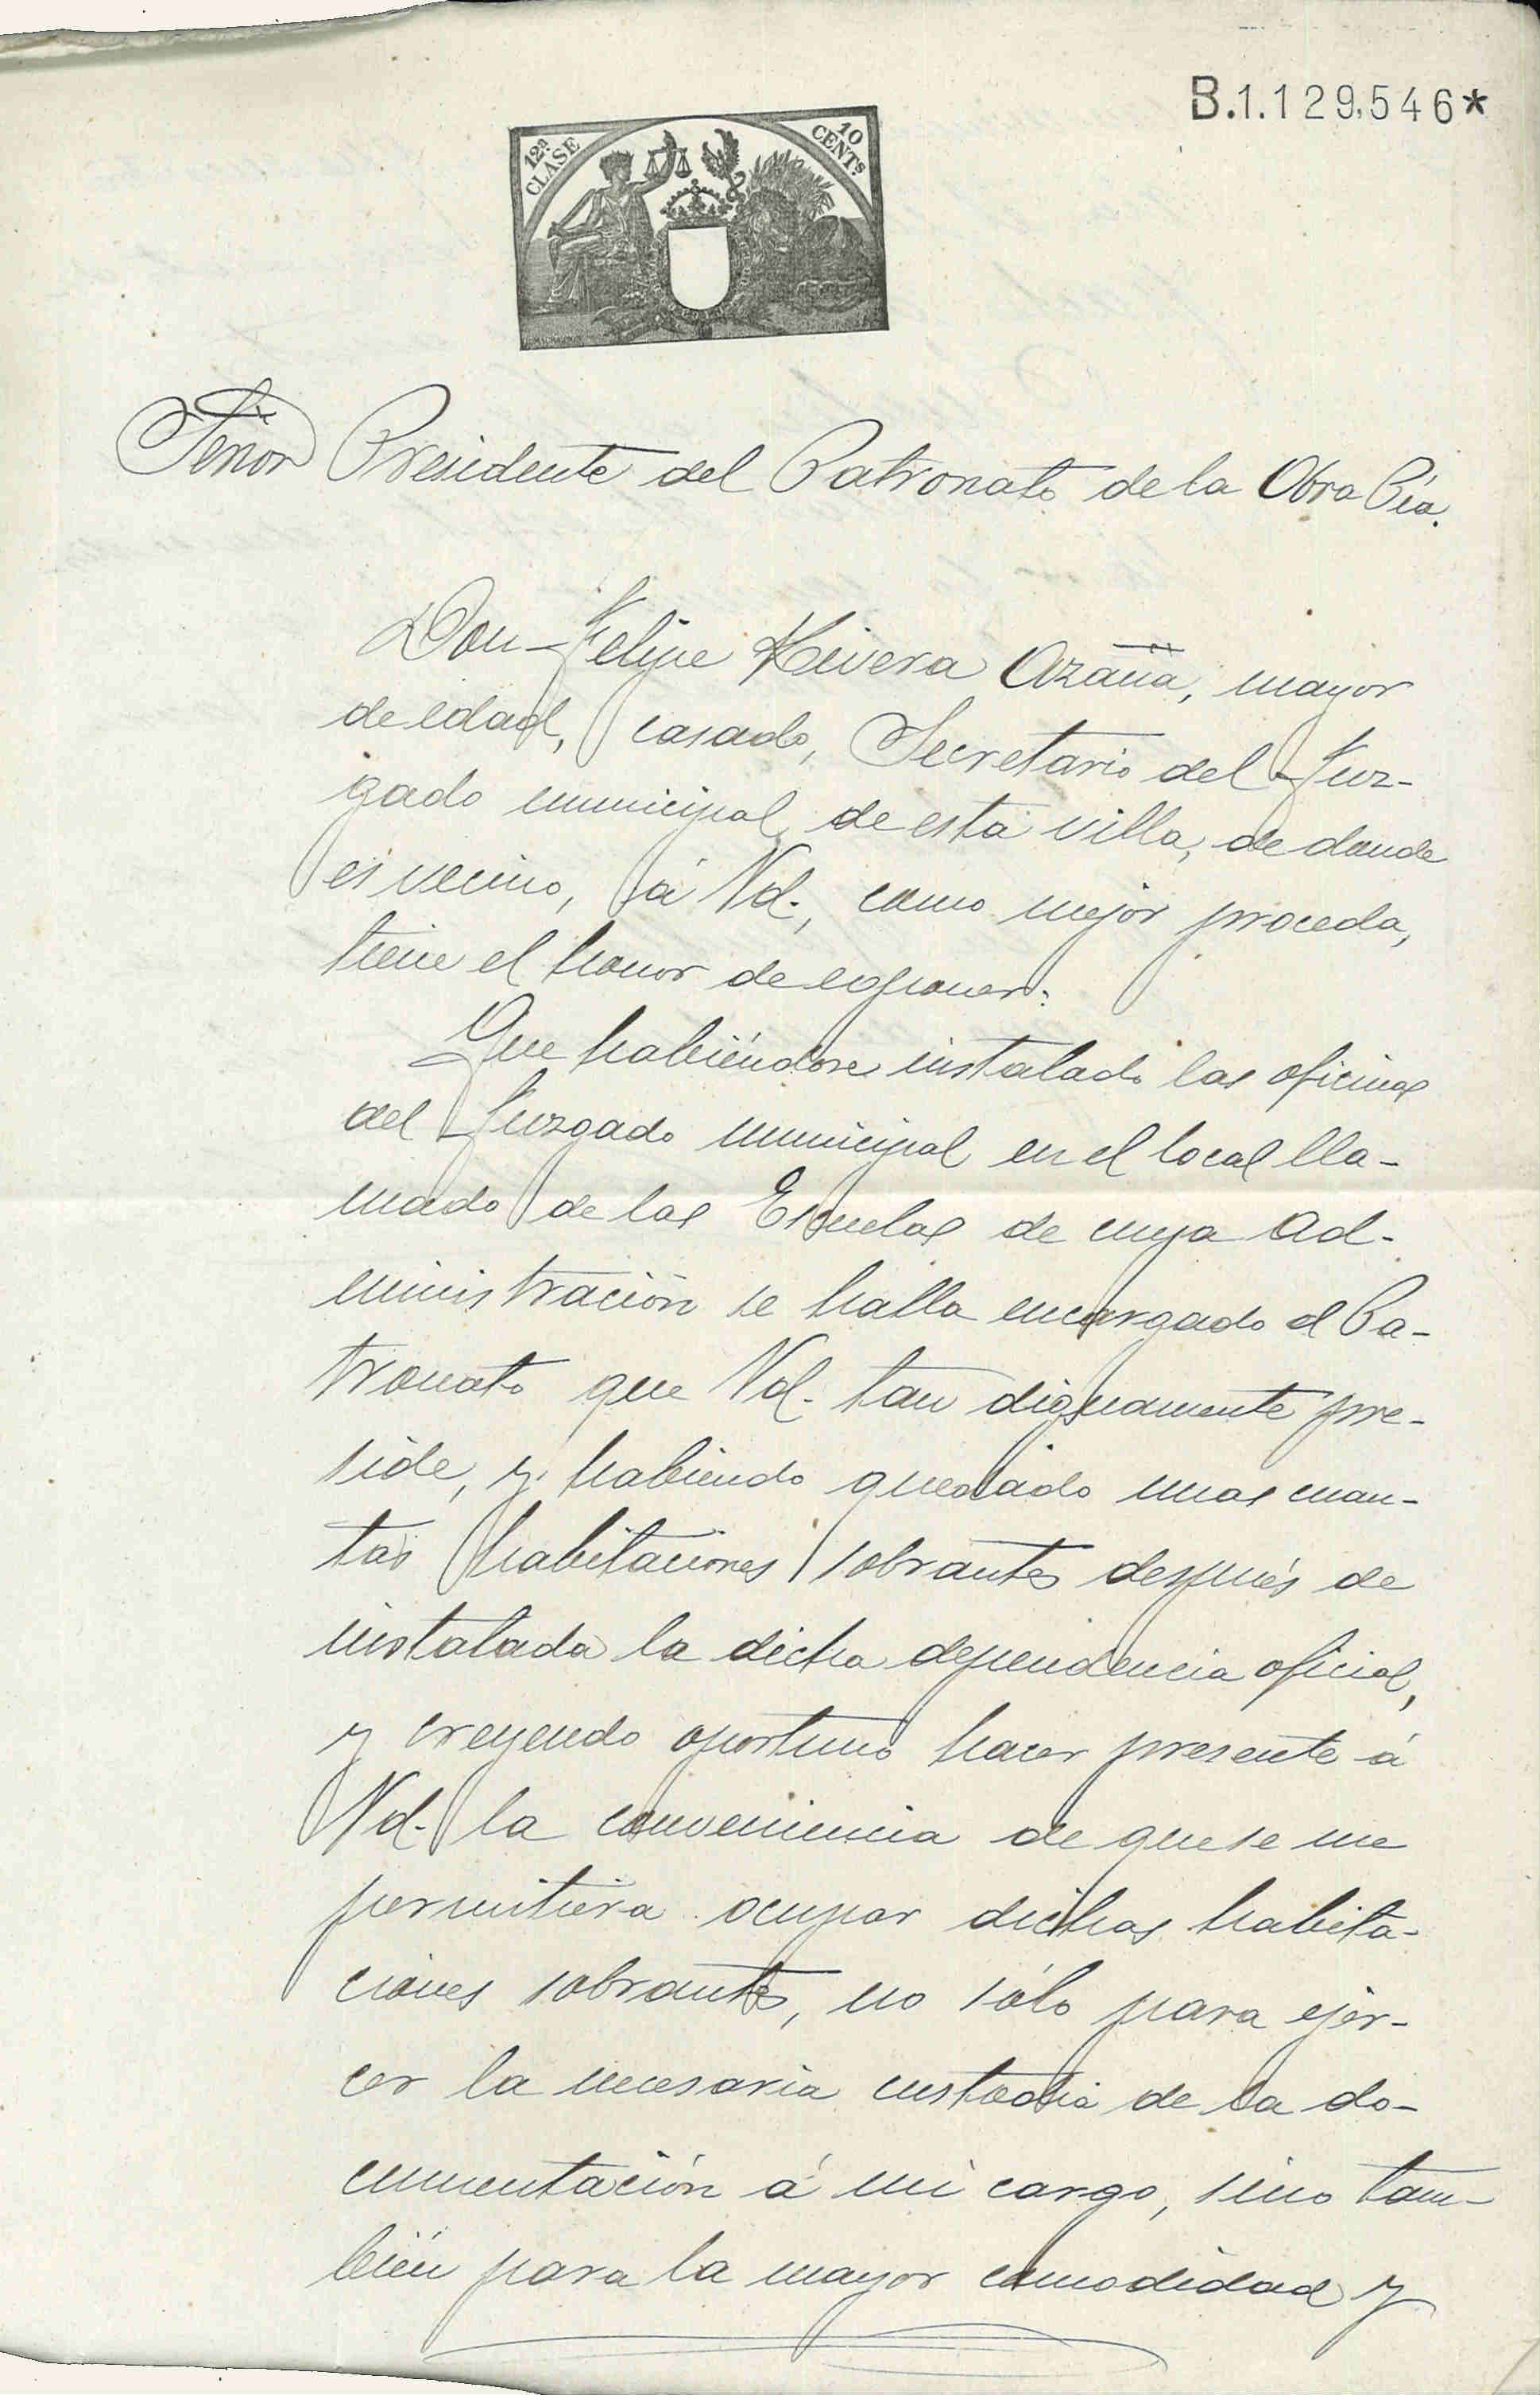 B.1.129.546*
12ª CLASE
10 CENTS
Señor Presidente del Patronato de la Obra Pía.
Don Felipe Rivera Azaña, mayor
de edad, casado, Secretario del Juz-
gado municipal de esta villa, de donde
es vecino, á Vd., como mejor proceda,
tiene el honor de exponer:
Que habiéndose instalado las oficinas
del Juzgado municipal en el local lla-
mado de las Escuelas de cuya Ad-
ministración se halla encargado el Pa-
tronato que Vd. tan dignamente pre-
side, y habiendo quedado unas cuan-
tas habitaciones sobrantes después de
instalada la dicha dependencia oficial,
y creyendo oportuno hacer presente á
Vd. la conveniencia de que se me
permitiera ocupar dichas habita-
ciones sobrantes, no sólo para ejer-
cer la necesaria custodia de la do-
cumentación á mi cargo, sino tam-
bién para la mayor comodidad y